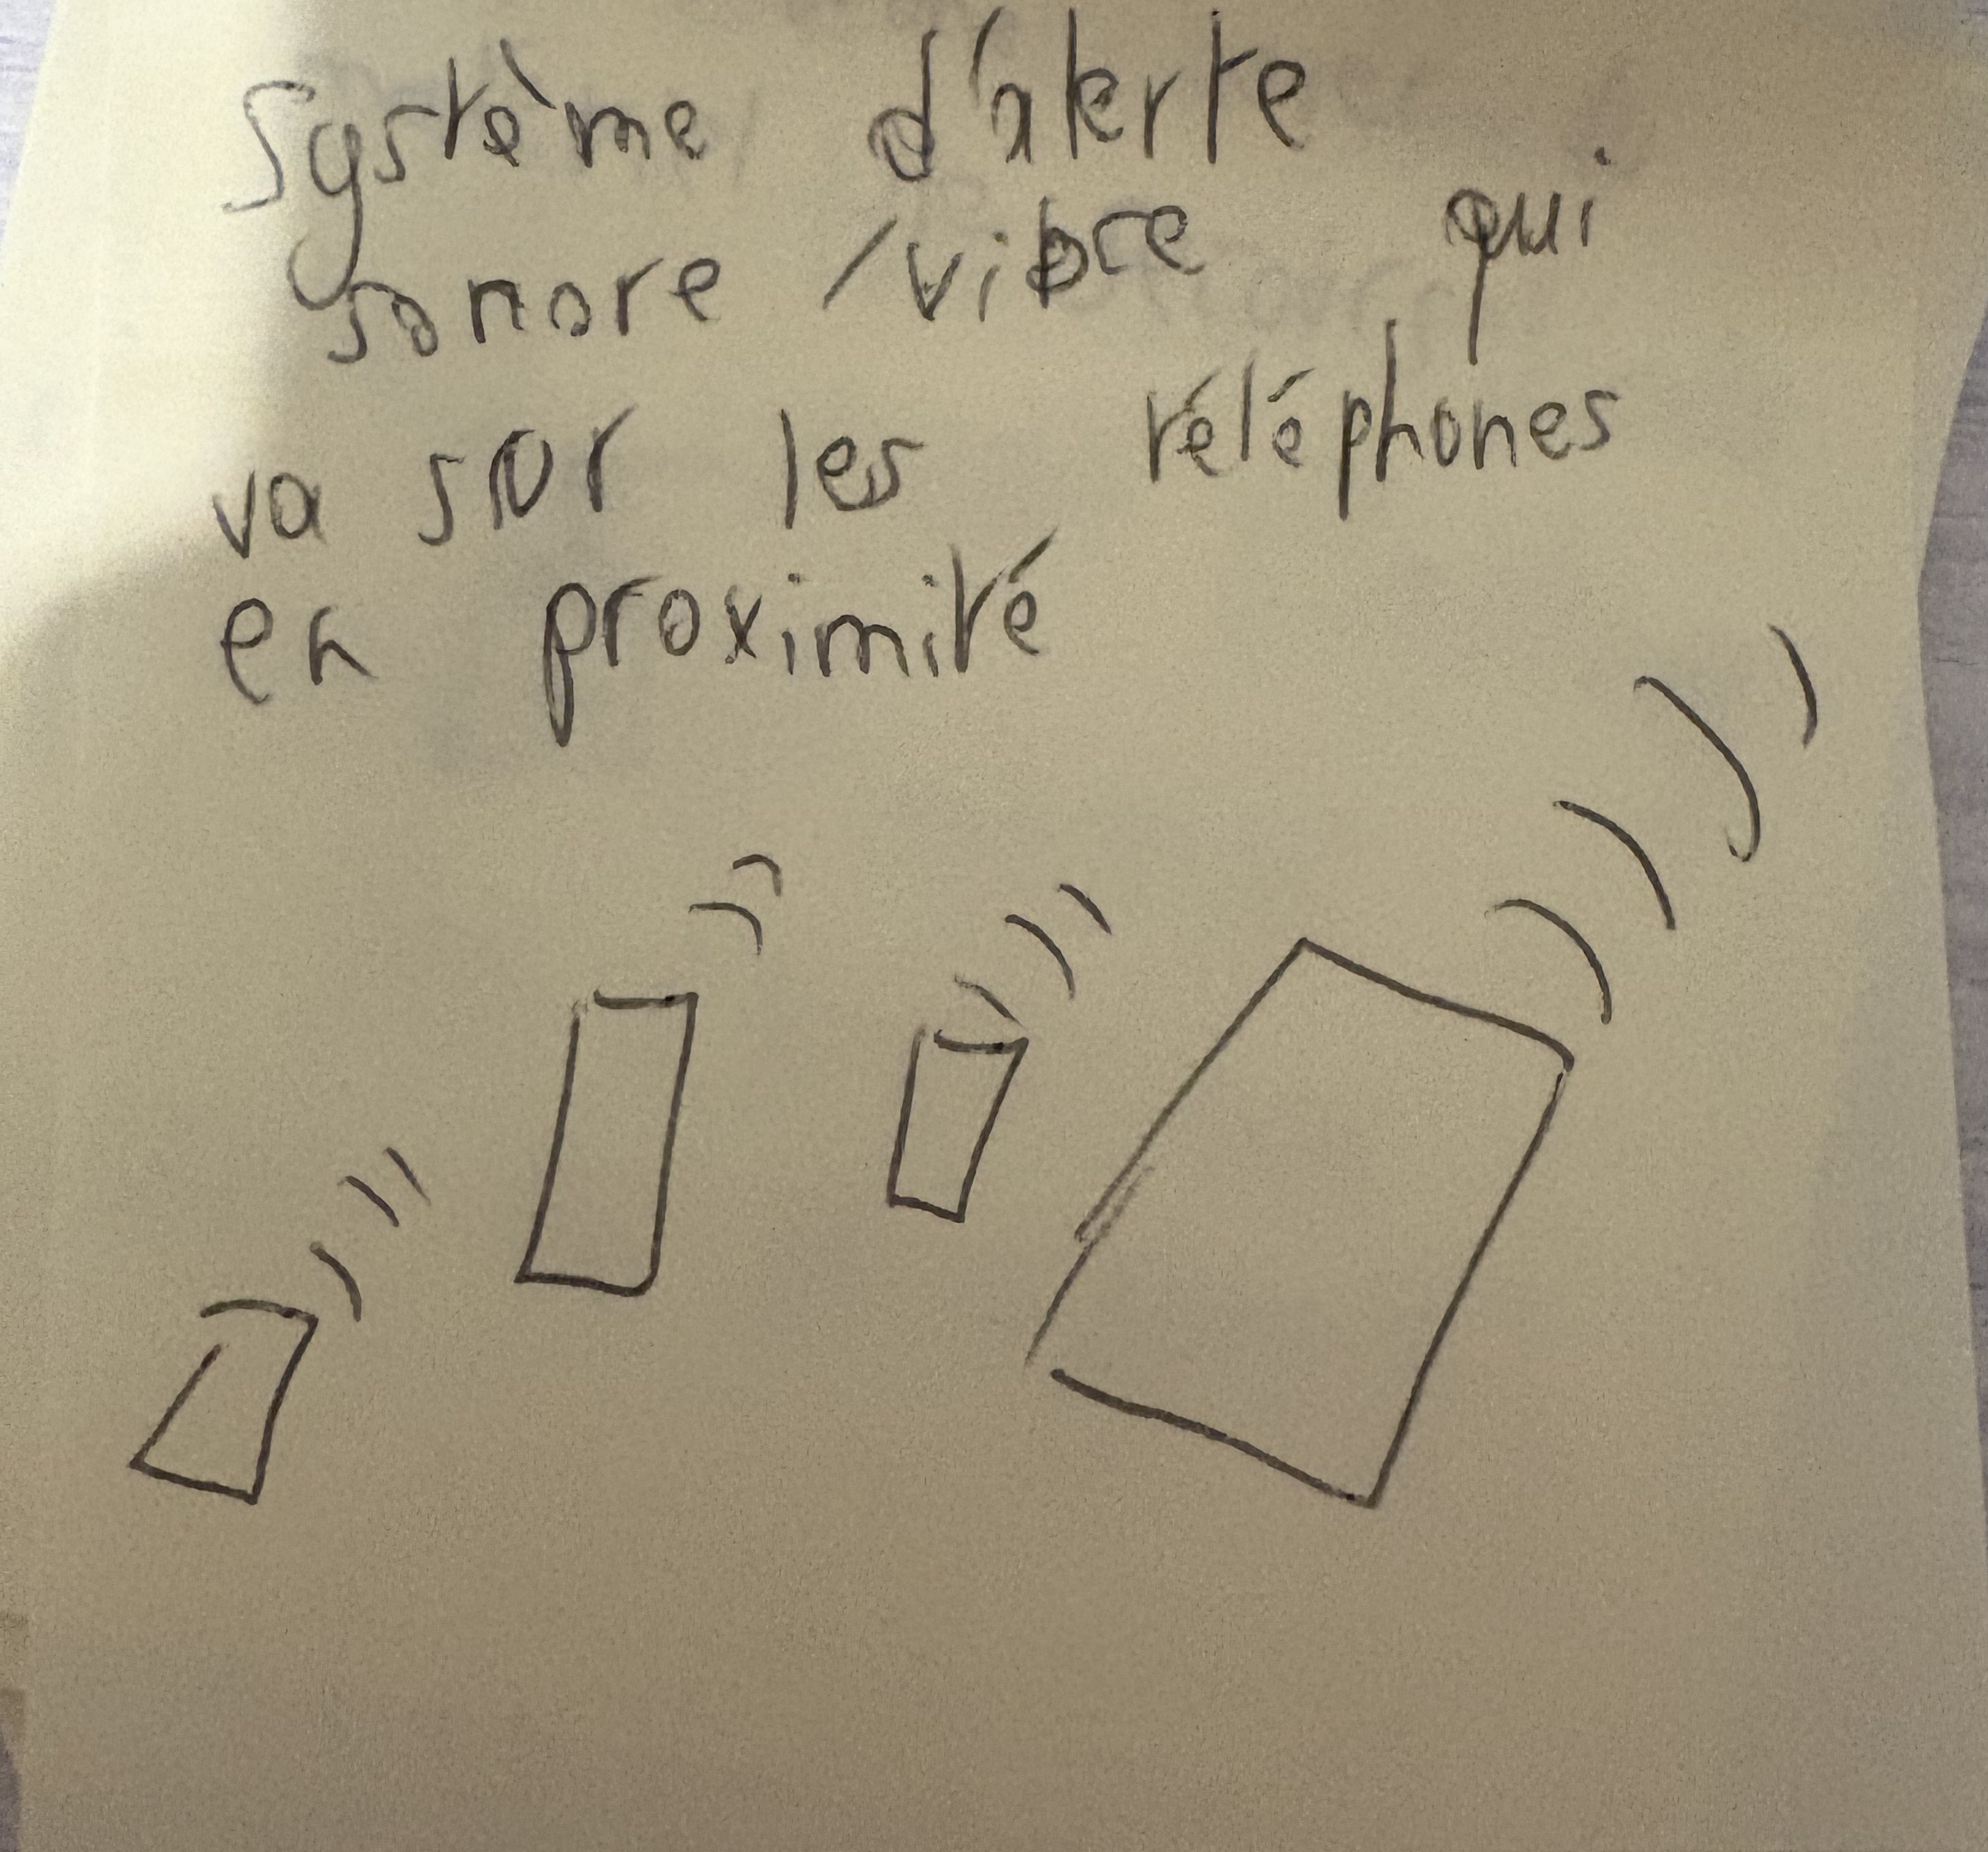 Système d'alerte
sonore / vibre qui
va sur les téléphones
en proximité